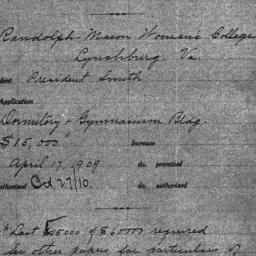 Randolph-Macon Woman's College
Lynchburg Va.
dent President Smith
Application
Dormitory & Gymnasium Bldg.
$15,000. Increase
April 17 1909 do. promised
uthorized Oct 27/10. do. authorized
Last $5000 of $60000 required
See other papers for particulars of